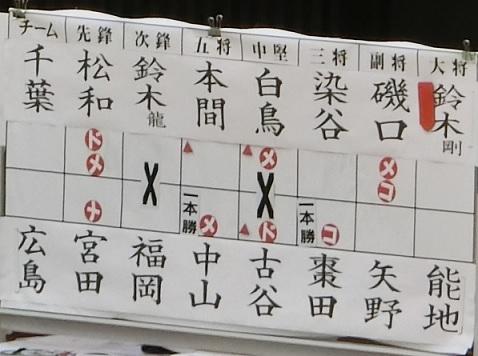 チーム 先鋒 次鋒 五将 中堅 三将 副将 大将
千葉 松和 鈴木龍 本間 白鳥 染谷 磯口 鈴木剛
ド メ メ
メ X X コ
メ 一本勝 メ ド 一本勝 コ
広島 宮田 福岡 中山 古谷 棗田 矢野 能地